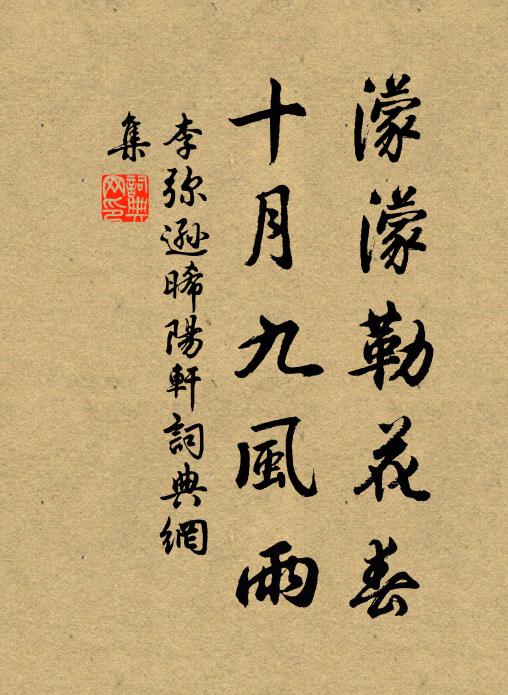 濛濛勒花春
十月九風雨
李弥遜晞陽軒詞典網
集
詞典
网印